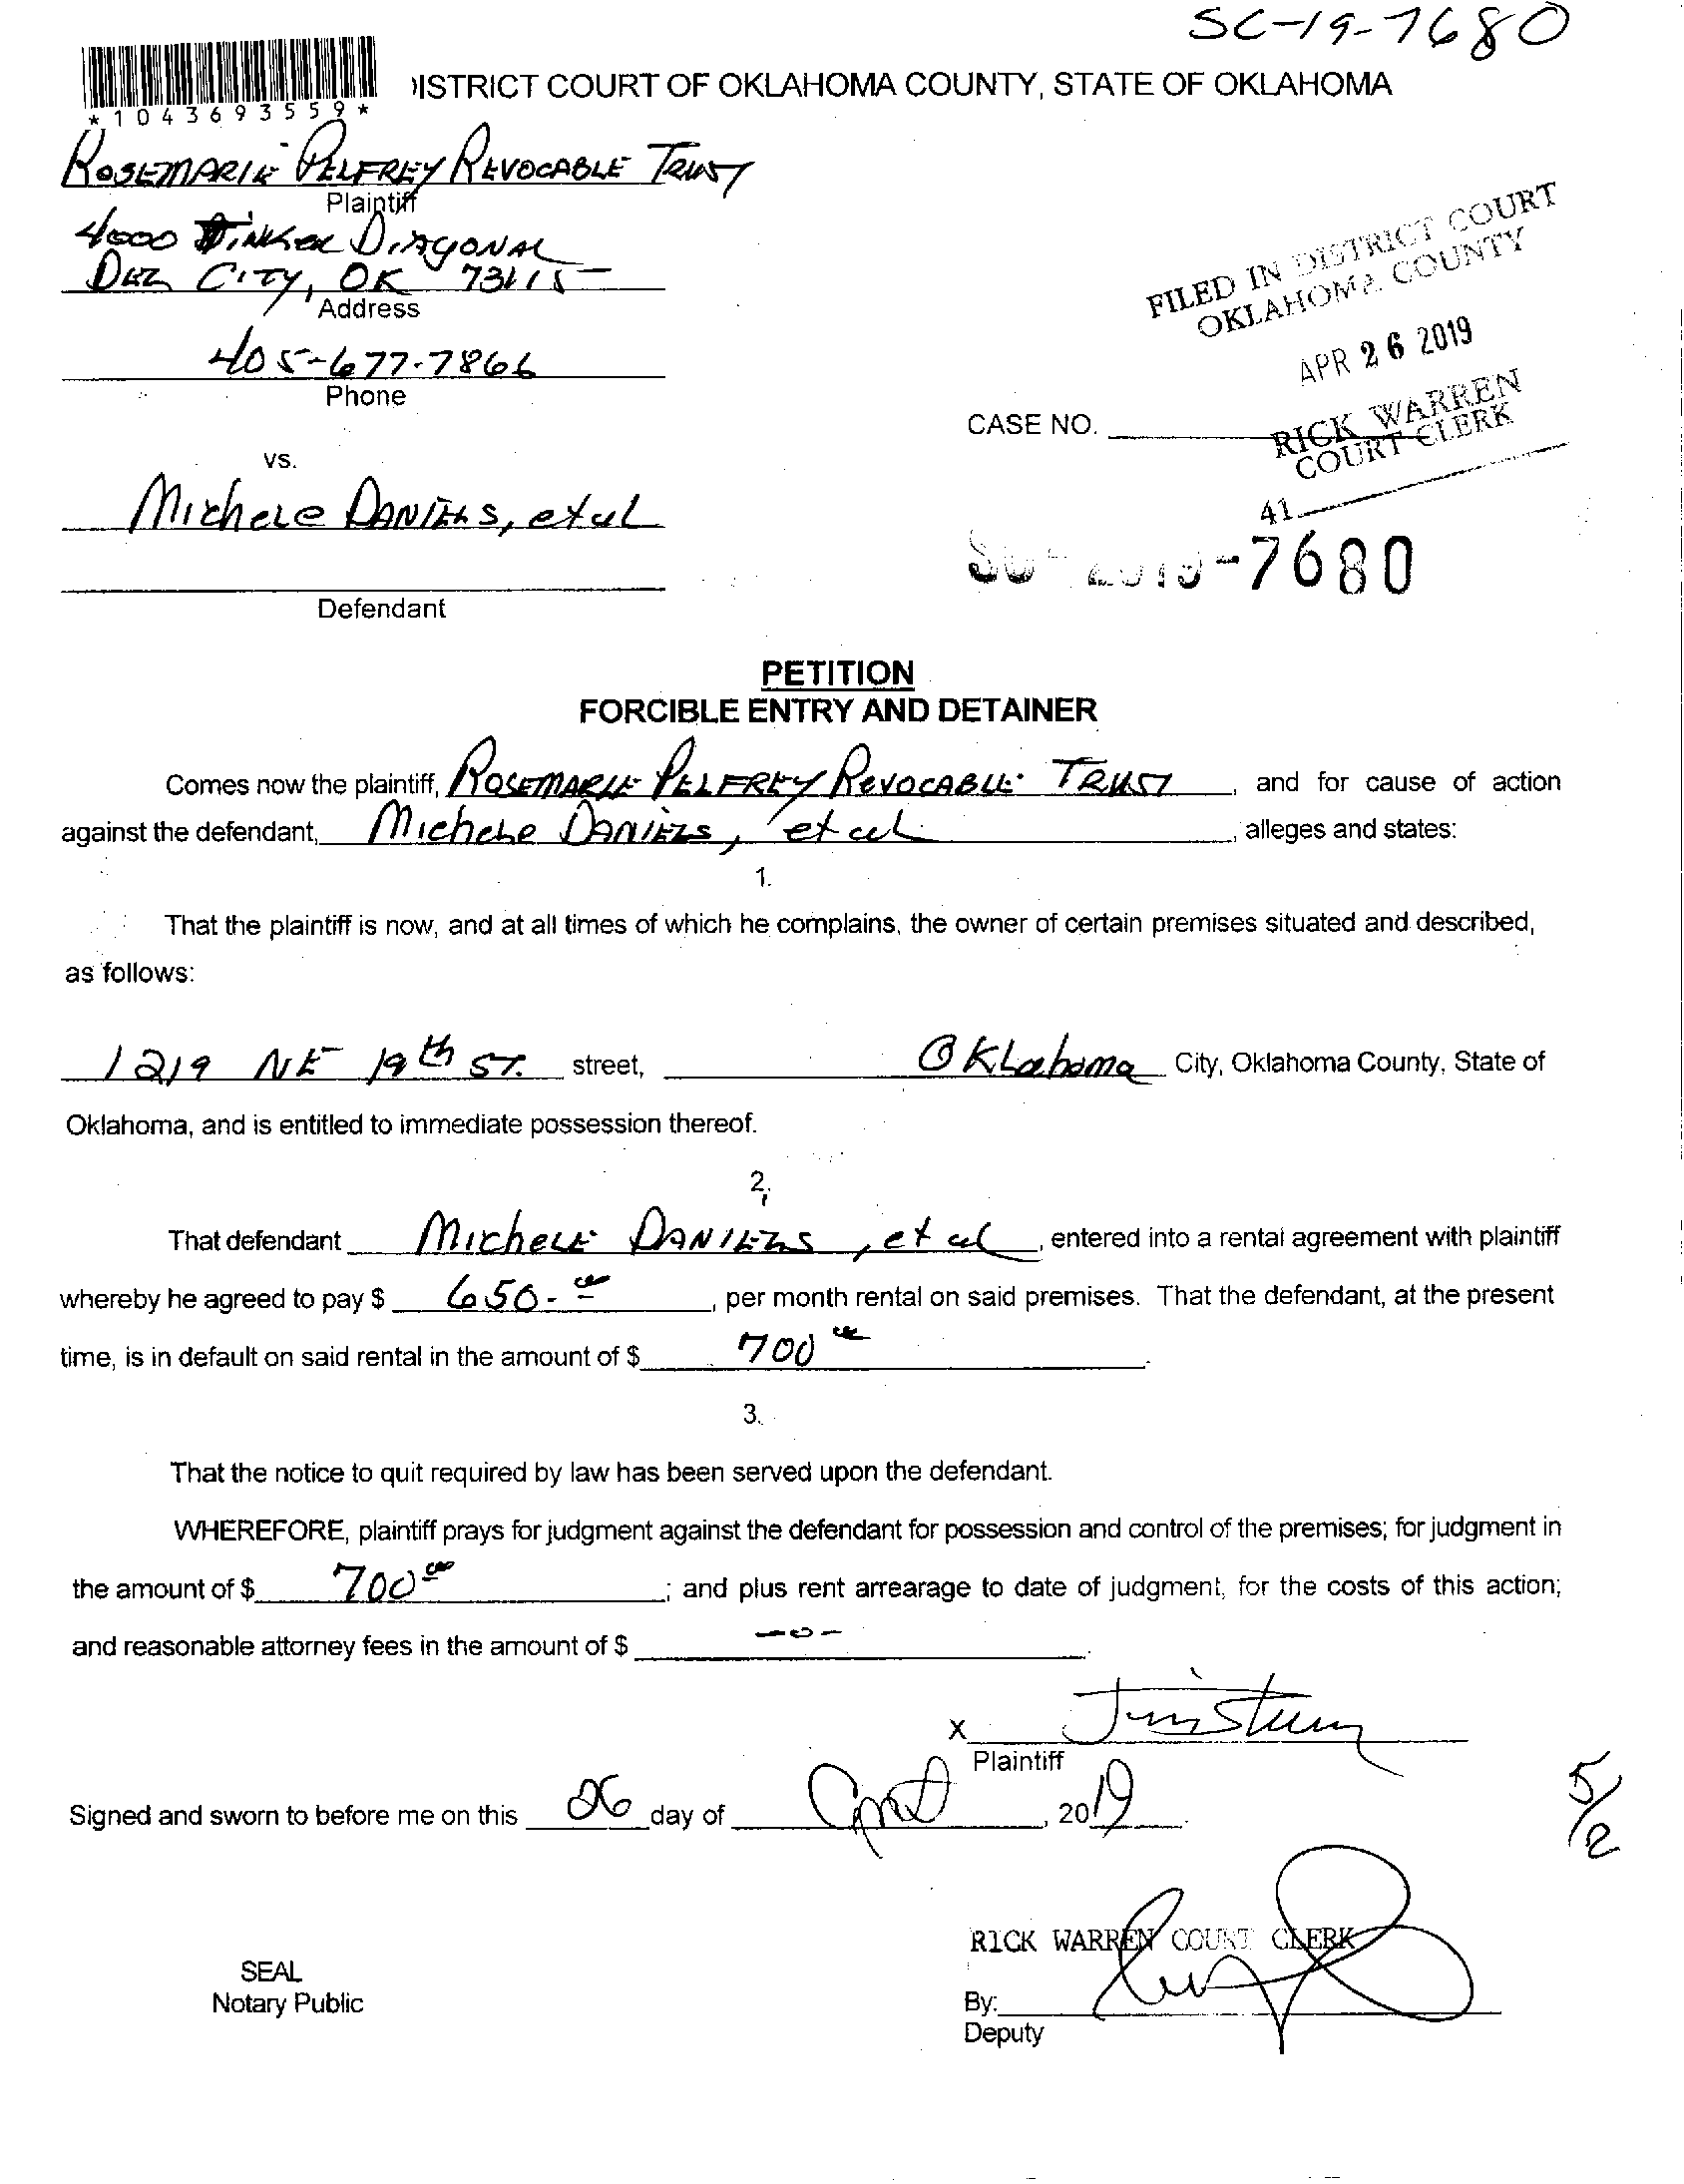 SC-19-7680
*1043693559*
DISTRICT COURT OF OKLAHOMA COUNTY, STATE OF OKLAHOMA
ROSEMARIE PELFREY REVOCABLE TRUST
Plaintiff
4000 TINKER DIAGONAL
DEL CITY, OK 73115
Address
405-677-7866
Phone
FILED IN DISTRICT COURT
OKLAHOMA COUNTY
APR 26 2019
RICK WARREN
COURT CLERK
41
CASE NO.
vs.
Michele DANIELS, et al
SC-2019-7680
Defendant
PETITION
FORCIBLE ENTRY AND DETAINER
Comes now the plaintiff, ROSEMARIE PELFREY REVOCABLE TRUST, and for cause of action
against the defendant, Michele DANIELS, et al, alleges and states:
1.
That the plaintiff is now, and at all times of which he complains, the owner of certain premises situated and described,
as follows:
1219 NE 19th ST. street, Oklahoma City, Oklahoma County, State of
Oklahoma, and is entitled to immediate possession thereof.
2.
That defendant Michele DANIELS, et al, entered into a rental agreement with plaintiff
whereby he agreed to pay $ 650.00, per month rental on said premises. That the defendant, at the present
time, is in default on said rental in the amount of $ 700 00.
3.
That the notice to quit required by law has been served upon the defendant.
WHEREFORE, plaintiff prays for judgment against the defendant for possession and control of the premises; for judgment in
the amount of $ 700 00; and plus rent arrearage to date of judgment, for the costs of this action;
and reasonable attorney fees in the amount of $ -0-.
X
Plaintiff
Signed and sworn to before me on this 26 day of April, 2019.
5/2
RICK WARREN COURT CLERK
SEAL
Notary Public
By:
Deputy